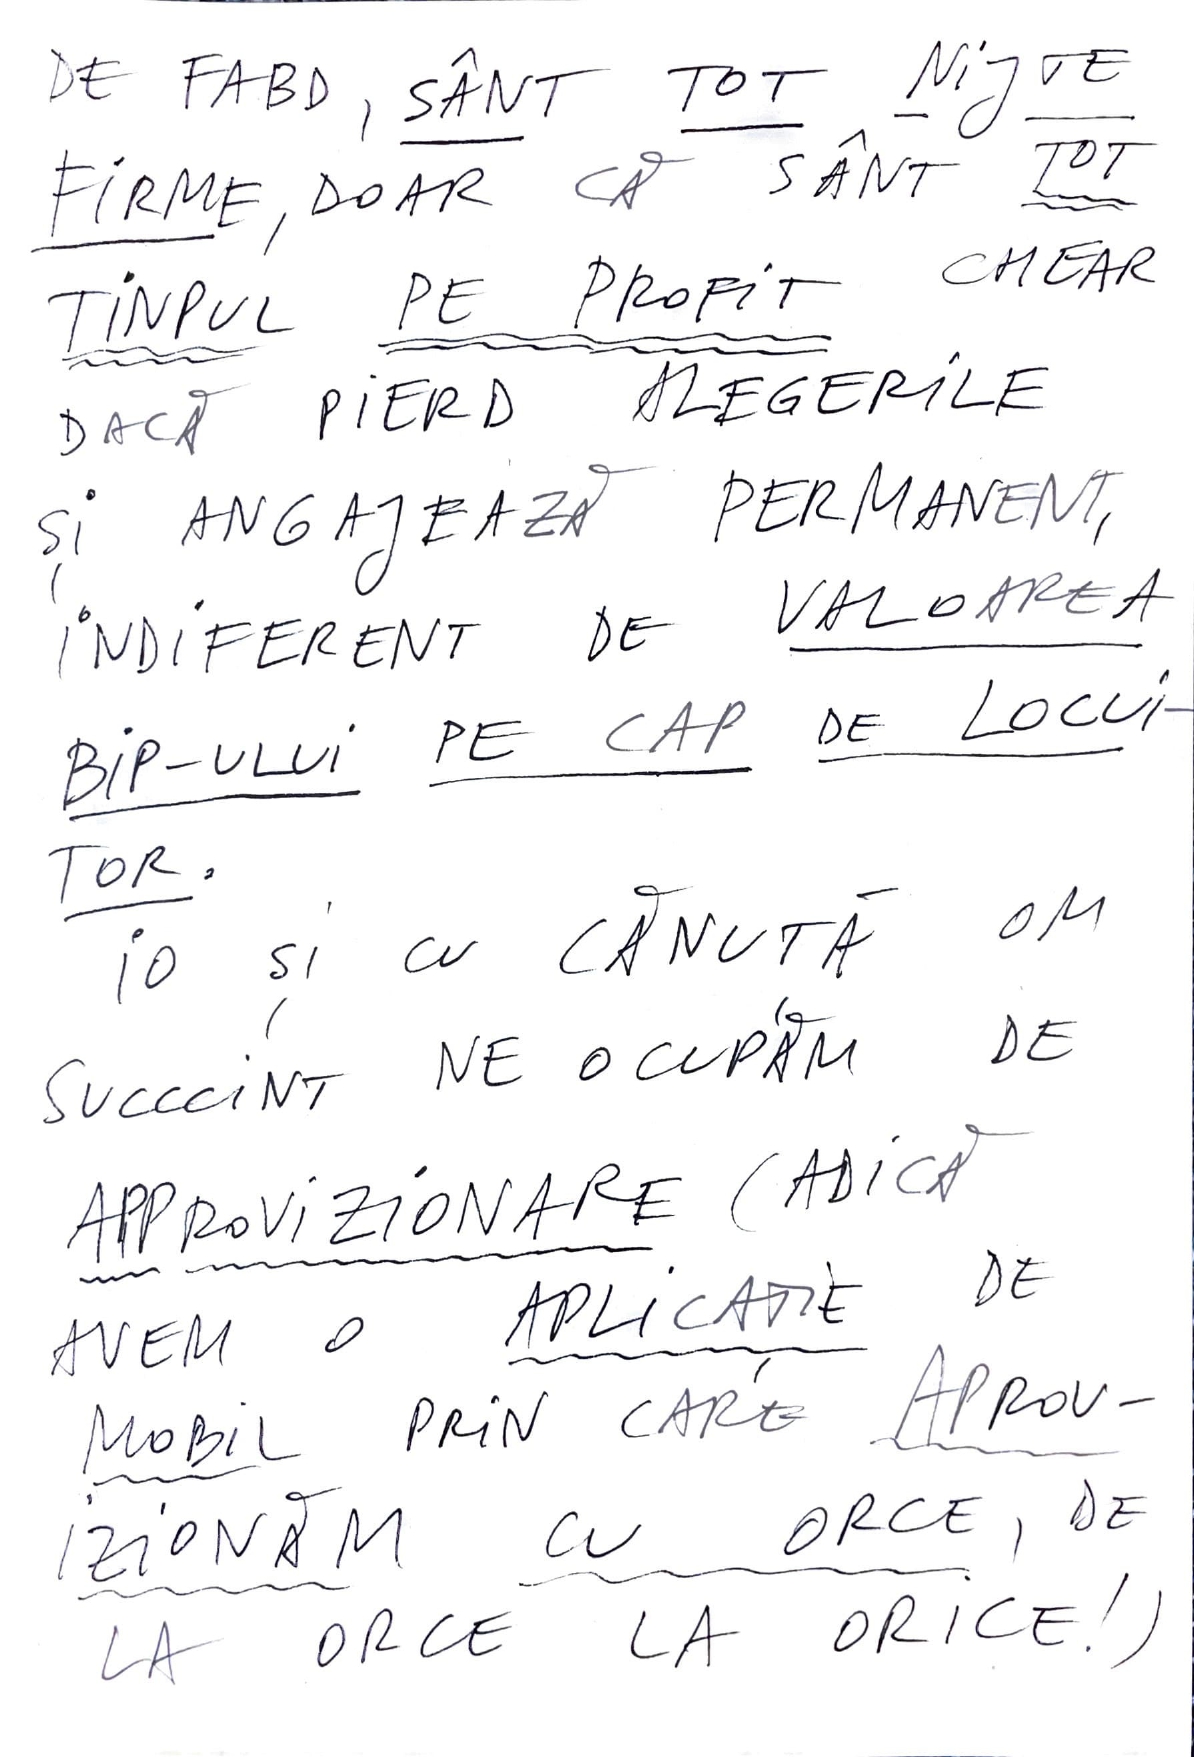 DE FABD, SÂNT TOT NiJTE
FiRME, DOAR CĂ SÂNT TOT
TiNPUL PE PROFiT CHEAR
DACĂ PiERD ALEGERiLE
Și ANGAJEAZĂ PERMANENT,
iNDiFERENT DE VALOAREA
BiP-ULUi PE CAP DE LOCUi-
TOR.
iO Și CU CĂNUTĂ OM
SUCCCiNT NE OCUPĂM DE
APPROViZiONARE (ADiCĂ
AVEM O APLiCAȚiE DE
MOBiL PRiN CARE APROV-
iZiONĂM CU ORCE, DE
LA ORCE LA ORiCE!)